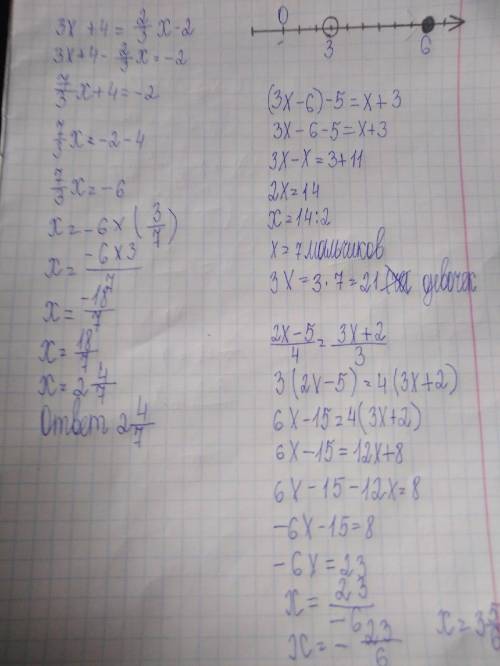 3x+4=2/3x-2
3x+4-2/3x=-2
7/3x+4=-2
7/3x=-2-4
7/3x=-6
x=-6×(3/7)
x=-6×3/7
x=-18/7
x=18/7
x=2 4/7
Ответ 2 4/7
0
3 6
(3x-6)-5=x+3
3x-6-5=x+3
3x-x=3+11
2x=14
x=14:2
x=7 мальчиков
3x=3·7=21 девочек
2x-5/4=3x+2/3
3(2x-5)=4(3x+2)
6x-15=4(3x+2)
6x-15=12x+8
6x-15-12x=8
-6x-15=8
-6x=23
x=23/-6
x=-23/6
x=3 5/6